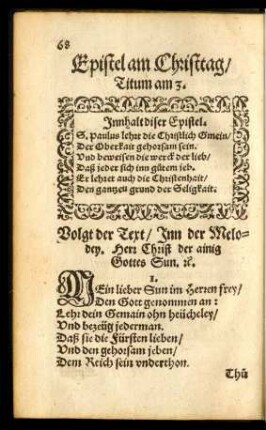 68
Epistel am Christtag/
Titum am 3.
Innhalt diser Epistel.
S. Paulus lehrt die Christlich Gmein/
Der Oberkait gehorsam sein.
Vnd beweisen die werck der lieb/
Daß jeder sich inn gütem yeb.
Er lehret auch die Christenhait/
Den gantzen grund der Seligkait.
Volgt der Text/ Inn der Melo-
dey. Herr Christ der ainig
Gottes Sun. ꝛc.
1.
MEin lieber Sun im Herren frey/
Den Gott genommen an:
Lehr dein Gemain ohn heücheley/
Vnd bezeüg jederman.
Daß sie die Fürsten lieben/
Vnd den gehorsam yeben/
Dem Reich sein vnderthon.
Thü